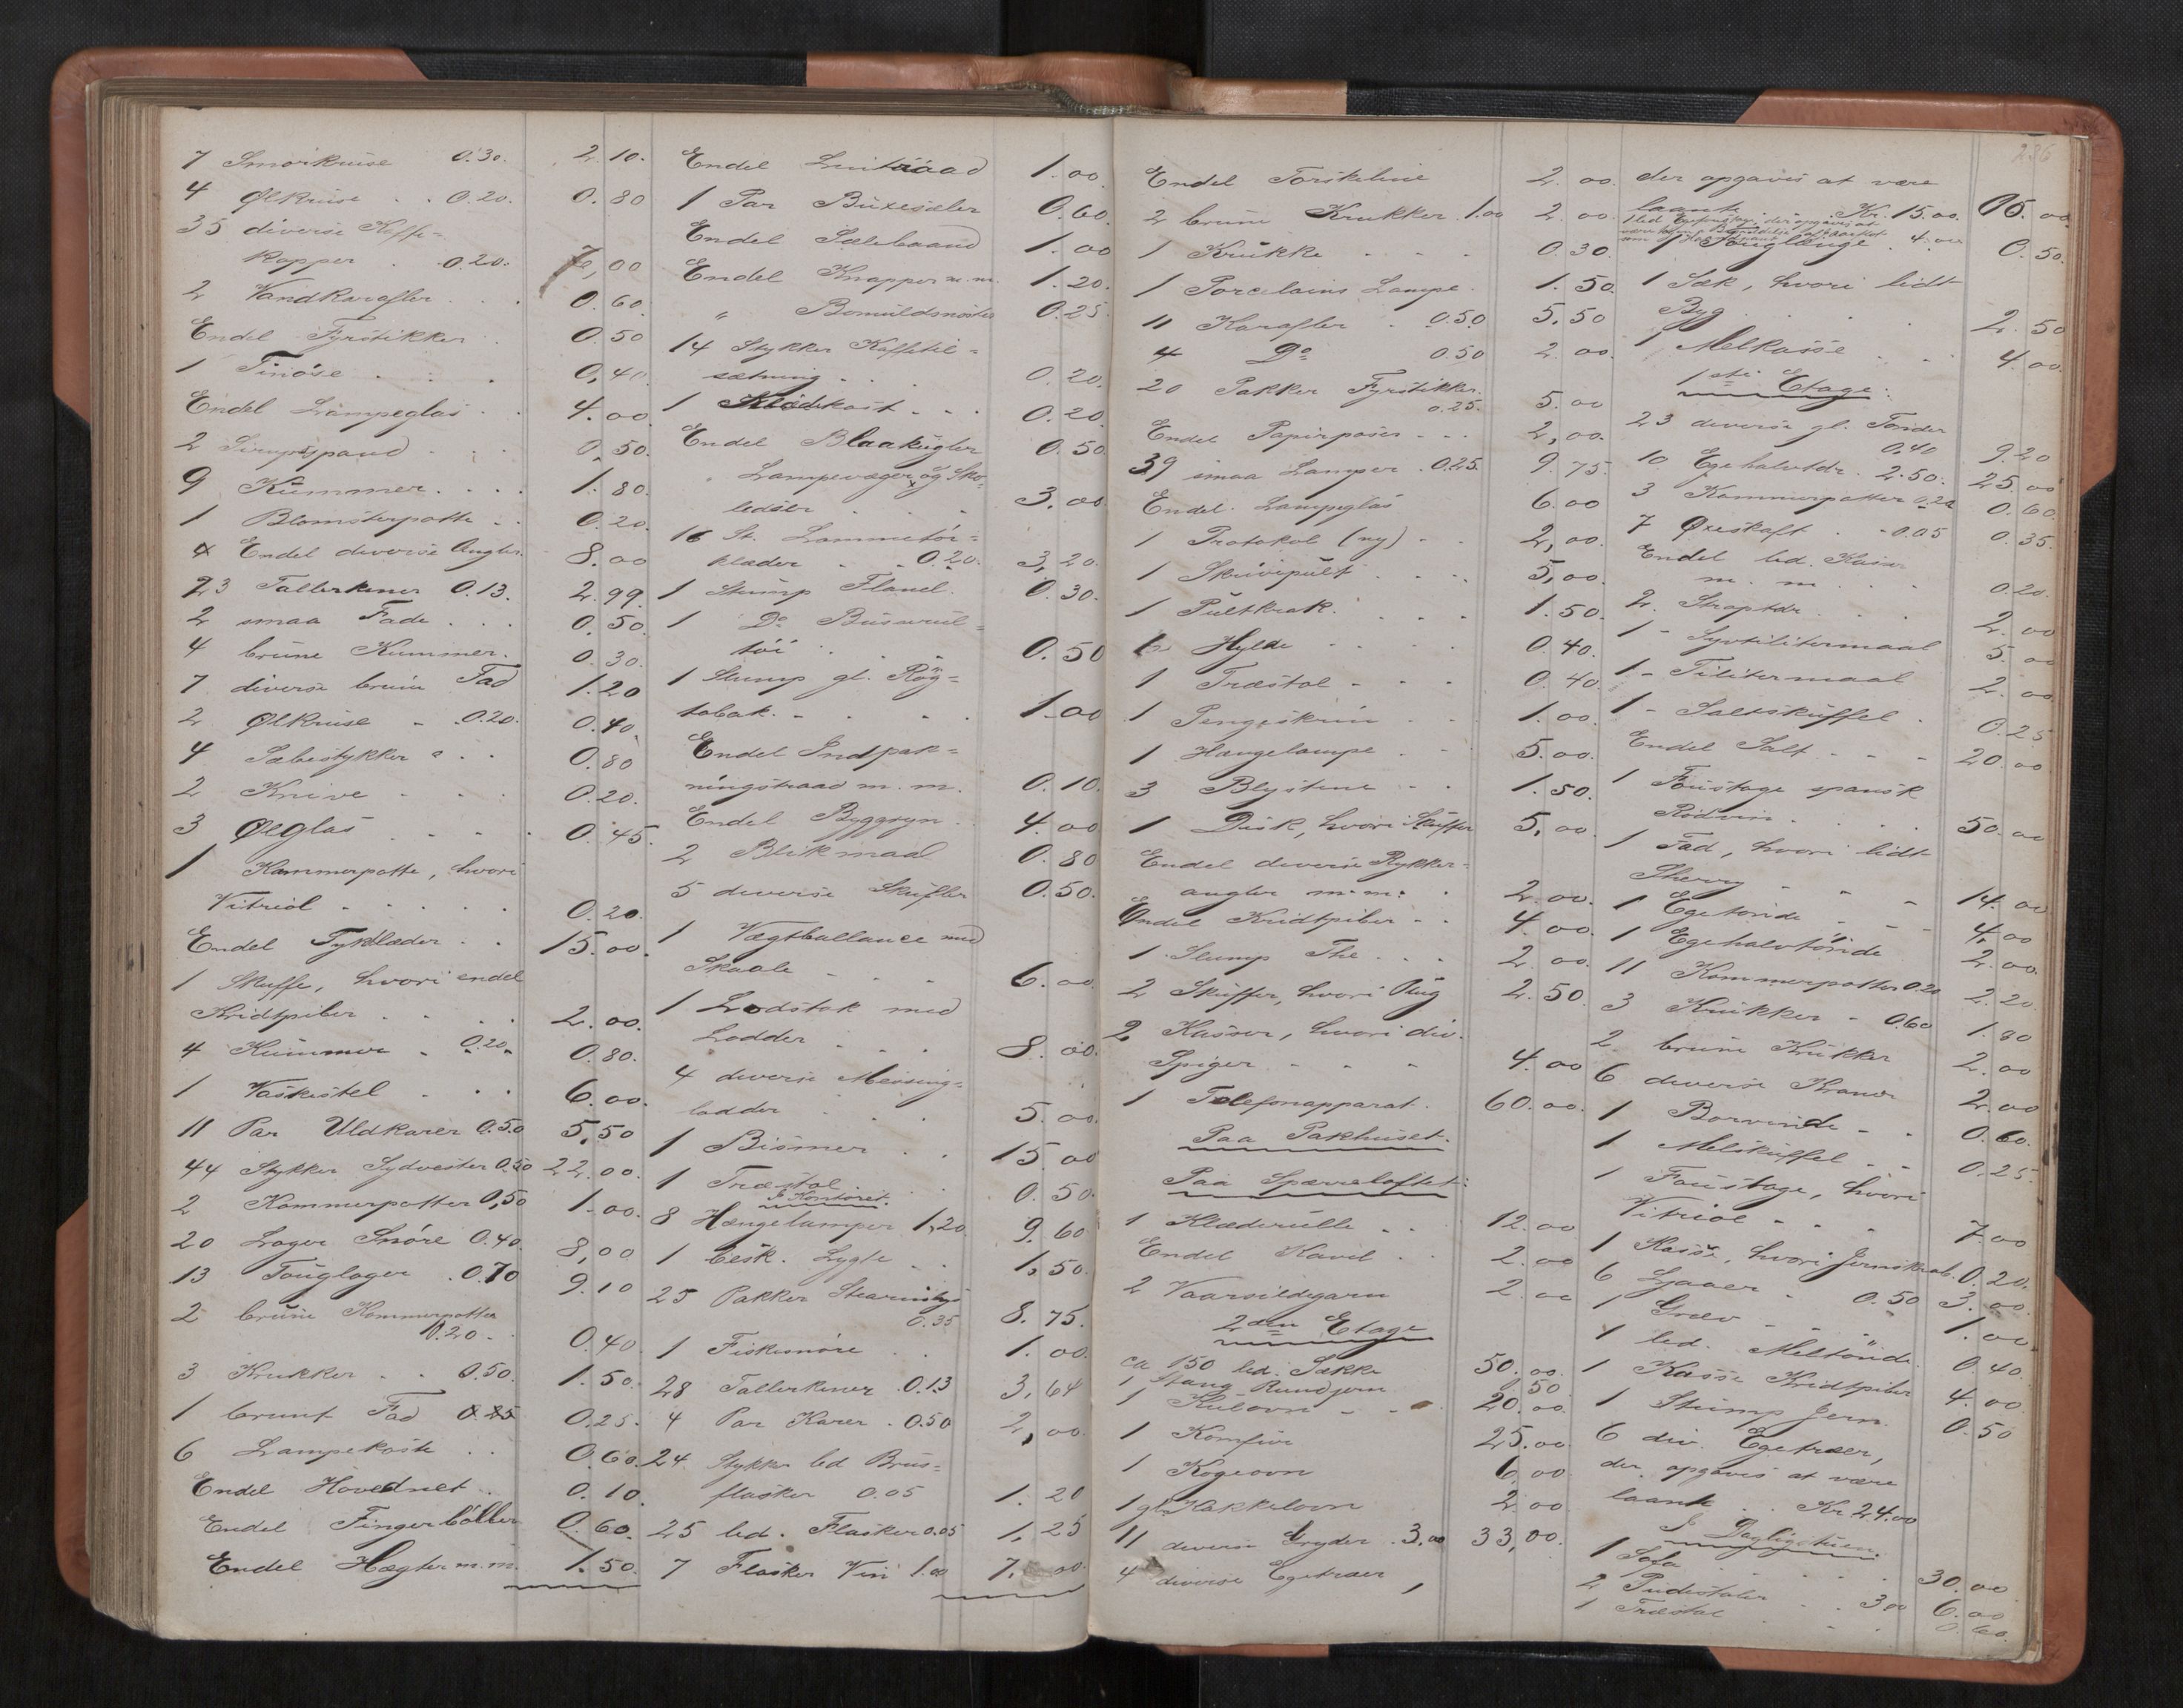 7 Smörkruse 0.30. 2.10.
4 Ølkruse . . 0.20. 0.80
35 diverse Kaffe=
kopper . 0.20. 7,00
2 Vandkarafler . . 0.60.
Endel Fyrstikker . 0.50
1 Tinöse . . . 0,40.
Endel Lampeglas . . 4.00
2 Sirupsspand . . . 0,50.
9 Kummer . . . . 1.80.
1 Blomsterpotte . . 0.20.
Endel diverse Angler. 8.00
23 Tallerkener 0.13. 2.99.
2 smaa Fade . . . 0.50.
4 brune Kummer. 0.30.
7 diverse brune Fad 1.20
2 Ølkruse - 0.20. 0.40.
4 Sæbestykker . . 0.80
2 Knive - . . . 0.20.
3 Ølglas . . . . 0.45.
1 Kammerpotte, hvori
Vitriol . . . . . 0.20.
Endel Tyklæder . . 15.00.
1 Skuffe, hvori endel
Kridtpiber . . . . 2.00.
4 Kummer . 0.20. 0.80.
1 Vaskestel . . . 6.00.
11 Par Uldkarer 0.50 5,50
44 Stykker Sydvester 0.50 22.00.
2 Kammerpotter 0,50 1.00.
20 Lager Snöre 0.40. 8,00
13 Touglager . 0.70 9.10
2 brune Kammerpotter
0.20 - 0.40
3 Krukker . . 0.50. 1.50.
1 brunt Fad 0.25 0.25.
6 Lampekoste . . 0.60.
Endel Hovednet . 0.10.
Endel Fingerböller 0.60.
Endel Hægter m.m. 1.50.
Endel 1.00.
1 Par Buxeseler 0.60.
Endel Sælebaand 1.00
Endel Knapper m.m. 1.20.
" Bomuldsnöster 0.25.
14 Stykker Kaffetil=
sætning . . . 0.20.
1 Klædekost . . . 0.20.
Endel Blaakugler 0.50
Lampevæger og Sko=
lidser . . . 3.00
16 St. Lommetör=
klæder . . 0.20. 3,20.
1 Stump Flanel. 0.30.
1 Do Buserul=
töi . . . . 0.50
1 Slump gl. Rög=
tobak. - . . . 1.00
Endel Indpak=
ningstraad m. m. 0.10.
Endel Byggryn . 4.00
2 Blikmaal 0.80
5 diverse Skufler 0.50.
1 Vægtballance med
Skaale . . . 6.00
1 Lodstok med
Lodder . . . 8.00.
4 diverse Messing=
lodder . . . 5.00.
1 Bismer . . 15.00
1 Træstol . . . 0.50.
I Kontoret.
8 Hængelamper 1,20 9.60
1 besk. Lygte . . 1,50.
25 Pakker Stearinlys
0.35 8.75.
1 Fiskesnöre . . 1.00.
28 Tallerkener . 0.13 3,64
4 Par Karer . 0.50 2,00.
24 Stykker led Brus=
flasker 0.05 1.20
25 led. Flasker 0.05 1,25
7 Flasker Vin 1.00 7.00.
236
Endel Torskeline 2.00.
2 brune Krukker . 1.00 2.00.
1 Krukke . . . . 0.30.
1 Porcelains Lampe . 1.50.
11 Karafler . 0.50 5.50
4 Do 0.50 2.00.
20 Pakker Fyrstikker.
0.25. 5.00
Endel Papirposer - - . 2,00.
39 smaa Lamper . 0.25. 9.75.
Endel Lampeglas 6.00
1 Protokol (ny) - - 2,00.
1 Skrivepult . . . . 5,00.
1 Pultkrak. . . . 1.50.
1 Hylde . . . . 0.40.
1 Træstol - - - 0.40.
1 Pengeskrin . . 1.00.
1 Hængelampe . . 5.00.
3 Blystene . . 1.50.
1 Disk, hvori Skuffer 5,00.
Endel diverse Rykker=
angler m.m. . 2.00.
Endel Kridtpiber . . 4.00.
1 Slump The . . . 2.00.
2 Skuffer, hvori Rug 2.50.
2 Kasser, hvori div.
Spiger - - - 4.00
1 Telefonapparat. 60.00.
Paa Pakhuset.
Paa Sperreloftet.
1 Klæderulle . . 12.00
Endel Kavel . . 2.00
2 Vaarsildegarn 2.00
2den Etage
ca 150 led. Sække 50.00.
1 Stang Rundjern 50
1 Kulovn - - 20.00.
1 Komfur 25.00.
1 Kogeovn 6.00
1 gl. Kakkelovn . 2.00
11 diverse Gryder . 3,00 33,00.
4 diverse Egetræer
der opgaves at være
laante . . Kr. 15.00. 05.00.
1 Touglænge . 4.00 0.50.
1 Sæk, hvori lidt
Byg . . . . 2.50
1 Melkasse . . . 4.00.
1ste Etage.
23 diverse gl. Tönder
0.40 9.20
10 Egehalvtdr. 2.50. 25.00
3 Kammerpotter 0.20 0.60.
7 Øxeskaft . - 0.05 0.35.
Endel led. Kasser
m. m. . . . 0.20.
2. Straptdr. . . . 2.00
1 - Syvtilitermaal 5.00
1 - Tilitermaal 2.00
1 - Saltskuffel . 0.25
Endel Salt . . - 20.00
1 Foustage spansk
Rödvin . . . . 50.00
1 Fad, hvori lidt
Sherry - - - 14.00
1 Egetönde . - - 4.00
1 Egehalvtönde 2.00.
11 Kammerpotter 0.20 2.20
3 Krukker - 0.60 1.80
2. brune Krukker 2.00
6 diverse Kraner 2.00
1 Borvinde - . 0.60.
1 Melskuffel - - 0.25.
1 Foustage, hvori
Vitriol - . . 7.00
1 Kasse, hvori Jernskrab. 0.20.
6 Ljaaer - 0.50 3.00.
1 Græv . . . . 1.00
1 led. Meltönde. 0.40.
1 Kasse Kridtpiber 4.00
1 Stump Jern. 0.50
6 div. Egetræer,
der opgaves at være
laante . . Kr 24.00
I Dagligstuen.
1 Sofa . . . . 30.00
2 Pudestoler . . 3.00 6.00
1 Træstol - . 0.60.